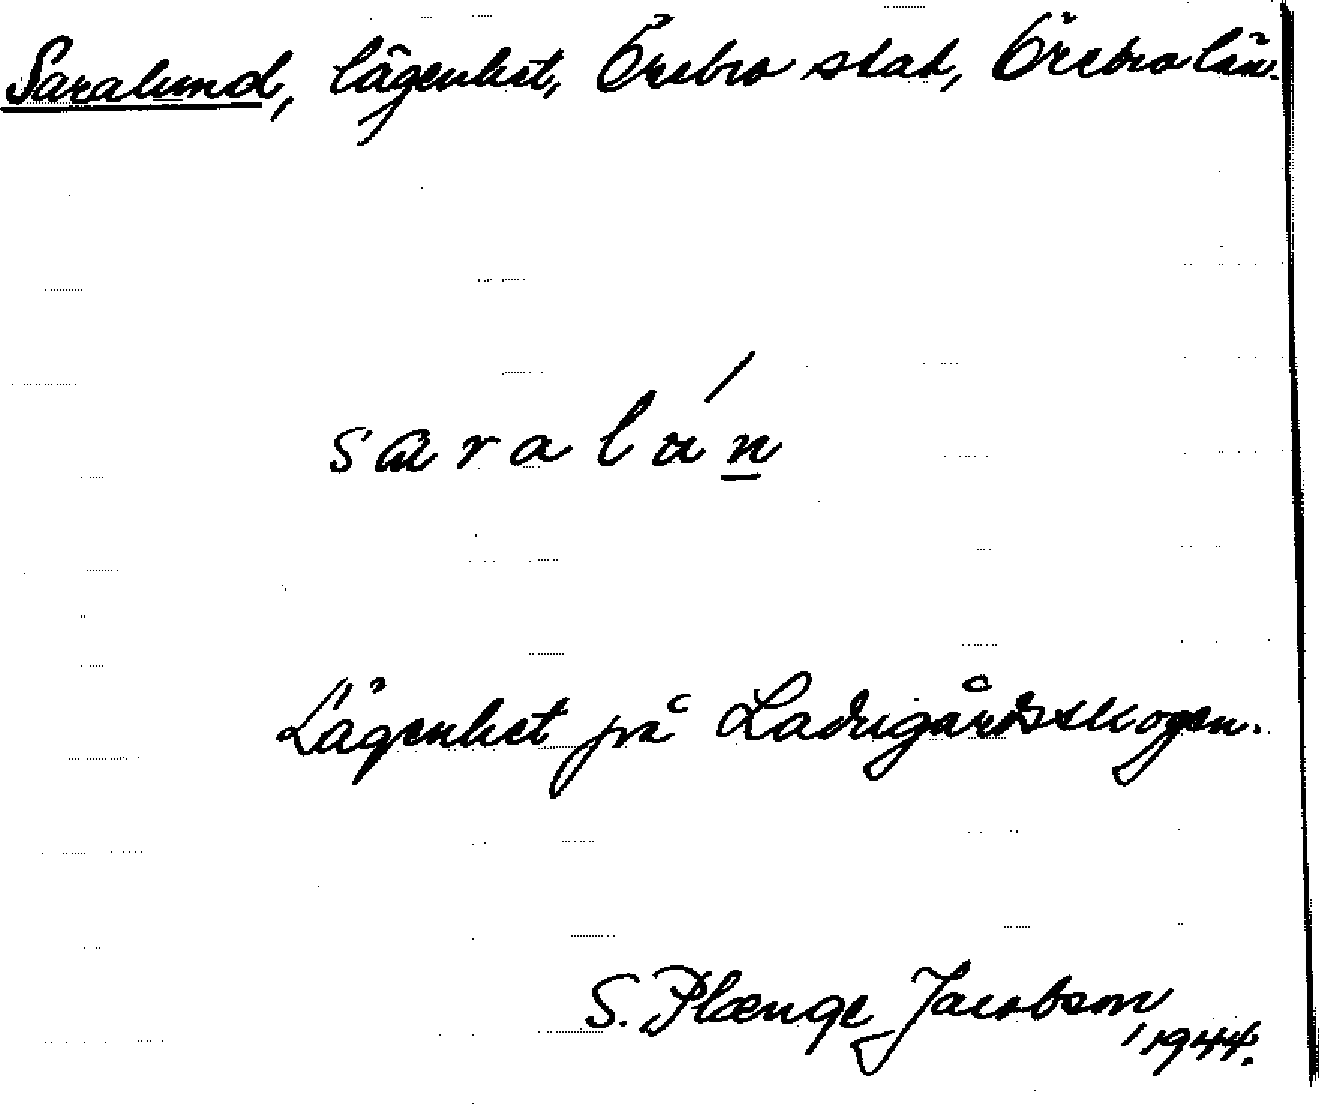 Saralund, lägenhet, Örebro stad, Örebro län.
saralán
Lägenhet på Ladugårdsskogen.
S. Plænge Jacobson
1944.